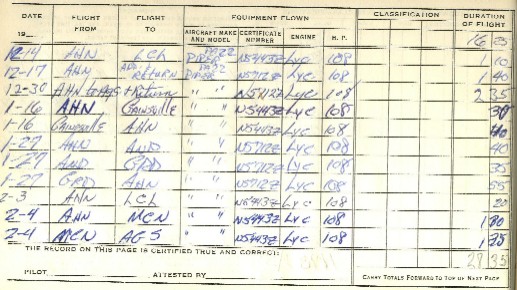 DATE FLIGHT FLIGHT EQUIPMENT FLOWN CLASSIFICATION DURATION
19 FROM TO AIRCRAFT MAKE AND MODEL CERTIFICATE NUMBER ENGINE H. P. OF FLIGHT
16 25
12-14 AHN LCL PIPER PA22 N5443Z LYC 108 1 10
12-17 AHN RETURN PIPER PA22 N5712Z LYC 108 1 40
12-30 AHN to AGS + Return " " LYC 108 2 35
1-16 AHN Gainsville " " N5443Z LYC 108 30
1-16 Gainsville AHN " " N5443Z LYC 108 40
1-27 AHN AND " " N5712Z LYC 108 40
1-27 AND GRD " " N5712Z LYC 108 30
1-27 GRD AHN " " N5712Z LYC 108 55
2-3 AHN LCL " " N5443Z LYC 108
2-4 AHN MCN " " N5443Z LYC 108 1 20
2-4 MCN AGS " " N5443Z LYC 108 1 25
THE RECORD ON THIS PAGE IS CERTIFIED TRUE AND CORRECT: 28 35
PILOT ATTESTED BY CARRY TOTALS FORWARD TO TOP OF NEXT PAGE